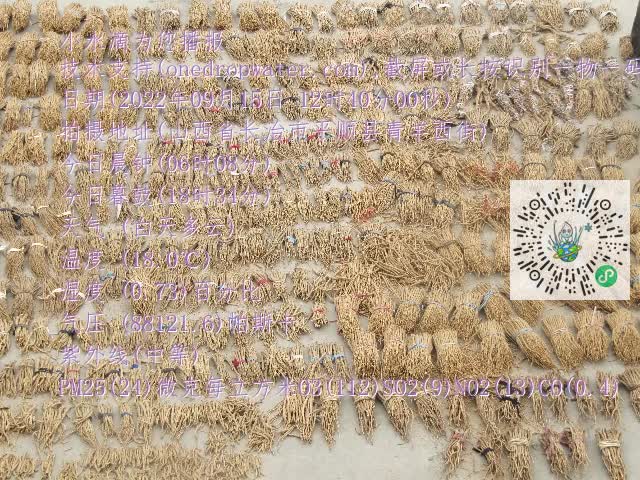 小水滴为您播报
技术支持(onedropwater.com) 截屏或长按识别一物一码
日期(2022年09月15日 12时10分00秒)
拍摄地址(山西省长治市平顺县青羊西街)
今日晨钟(06时08分)
今日暮鼓(18时34分)
天气 (白天多云)
温度 (18.0℃)
湿度 (0.73)百分比
气压 (88121.6)帕斯卡
紫外线(中等)
PM25(24)微克每立方米O3(112)SO2(9)NO2(13)CO(0.4)